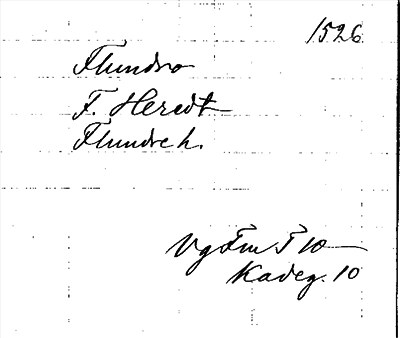 1526
Flundro
F. Heredt
Flundre h.
Vg Fm I 10
Kadeg. 10